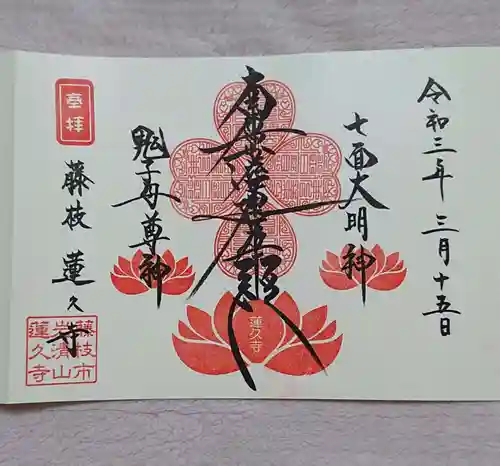 令和三年 三月十五日
七面大明神
南無妙法蓮華経
蓮久寺
鬼子母尊神
奉拝
藤枝 蓮久寺
藤枝市
岩清山
蓮久寺